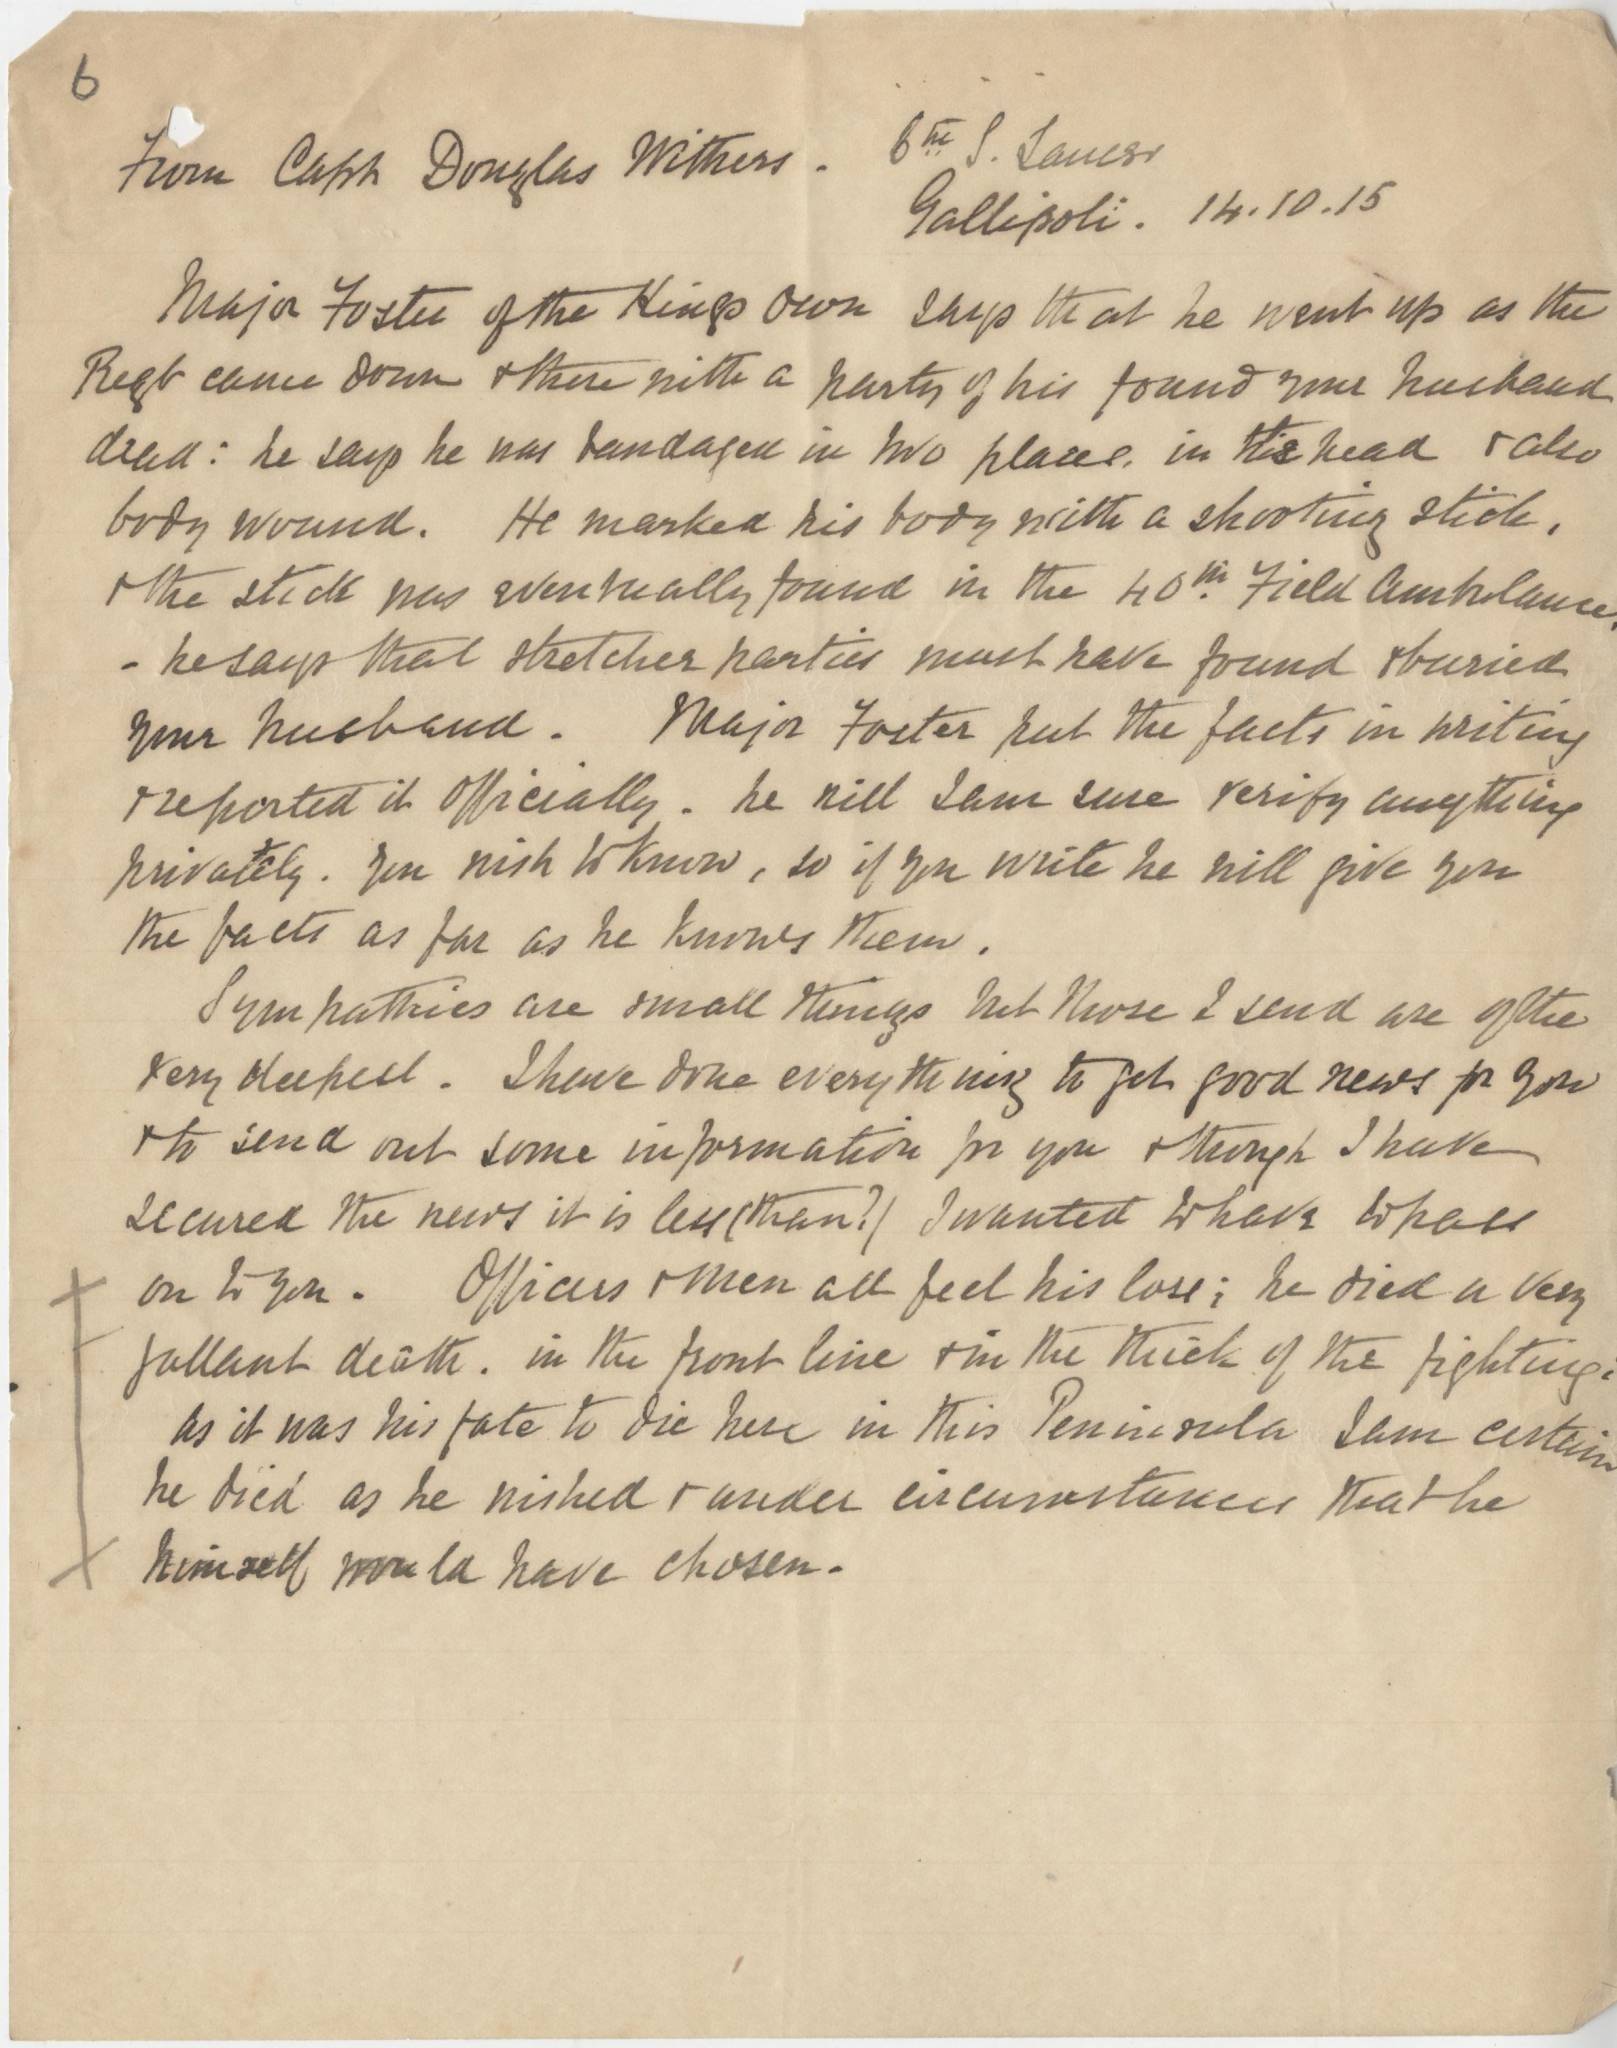 6
From Capt Douglas Withers. 6th S. Lancsr
Gallipoli. 14.10.15
Major Foster of the Kings Own says that he went up as the
Regt came down & there with a party of his found your husband
dead: he says he was bandaged in two places. in the head & also
body wound. He marked his body with a shooting stick,
& the stick was eventually found in the 40th Field Ambulance.
- he says that stretcher parties must have found & buried
your husband. Major Foster put the facts in writing
& reported it officially. he will I am sure verify anything
privately. you wish to know, so if you write he will give you
the facts as far as he knows them.
Sympathies are small things but those I send are of the
very deepest. I have done everything to get good news for you
& to send out some information for you & though I have
secured the news it is less (than?) I wanted to have to pass
on to you. Officers & Men all feel his loss; he died a very
gallant death. in the front line & in the thick of the fighting:
as it was his fate to die here in this Peninsula I am certain
he died as he wished & under circumstances that he
himself would have chosen.